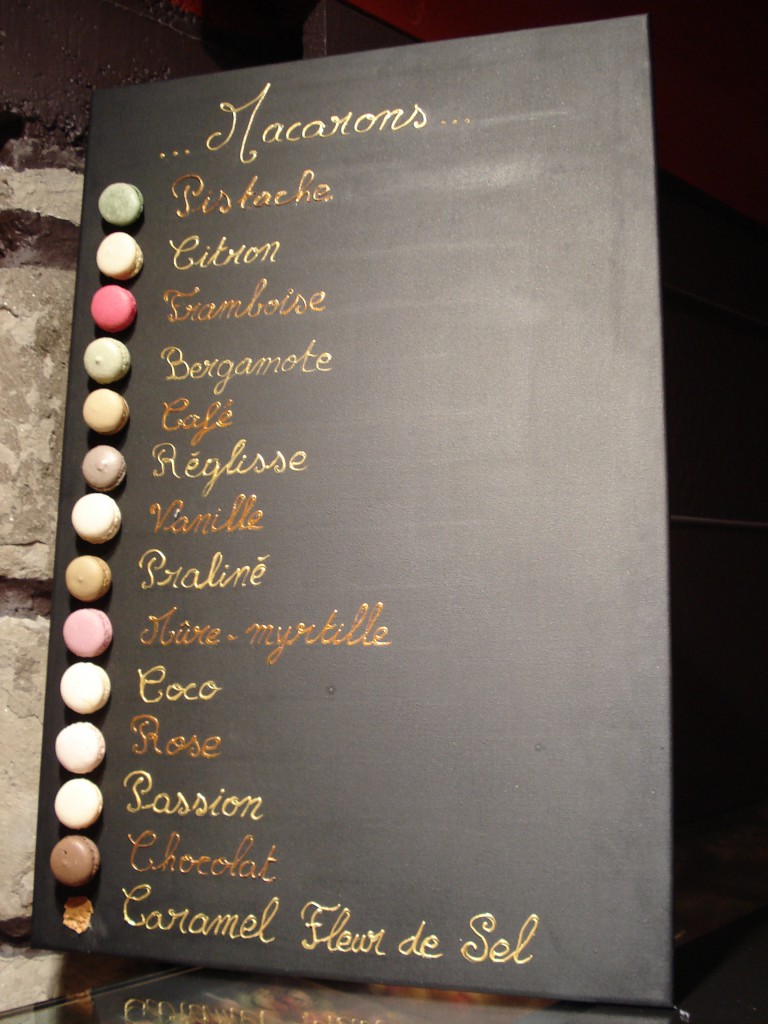 ... Macarons ...
Pistache
Citron
Framboise
Bergamote
Café
Réglisse
Vanille
Praliné
Mûre-myrtille
Coco
Rose
Passion
Chocolat
Caramel Fleur de Sel